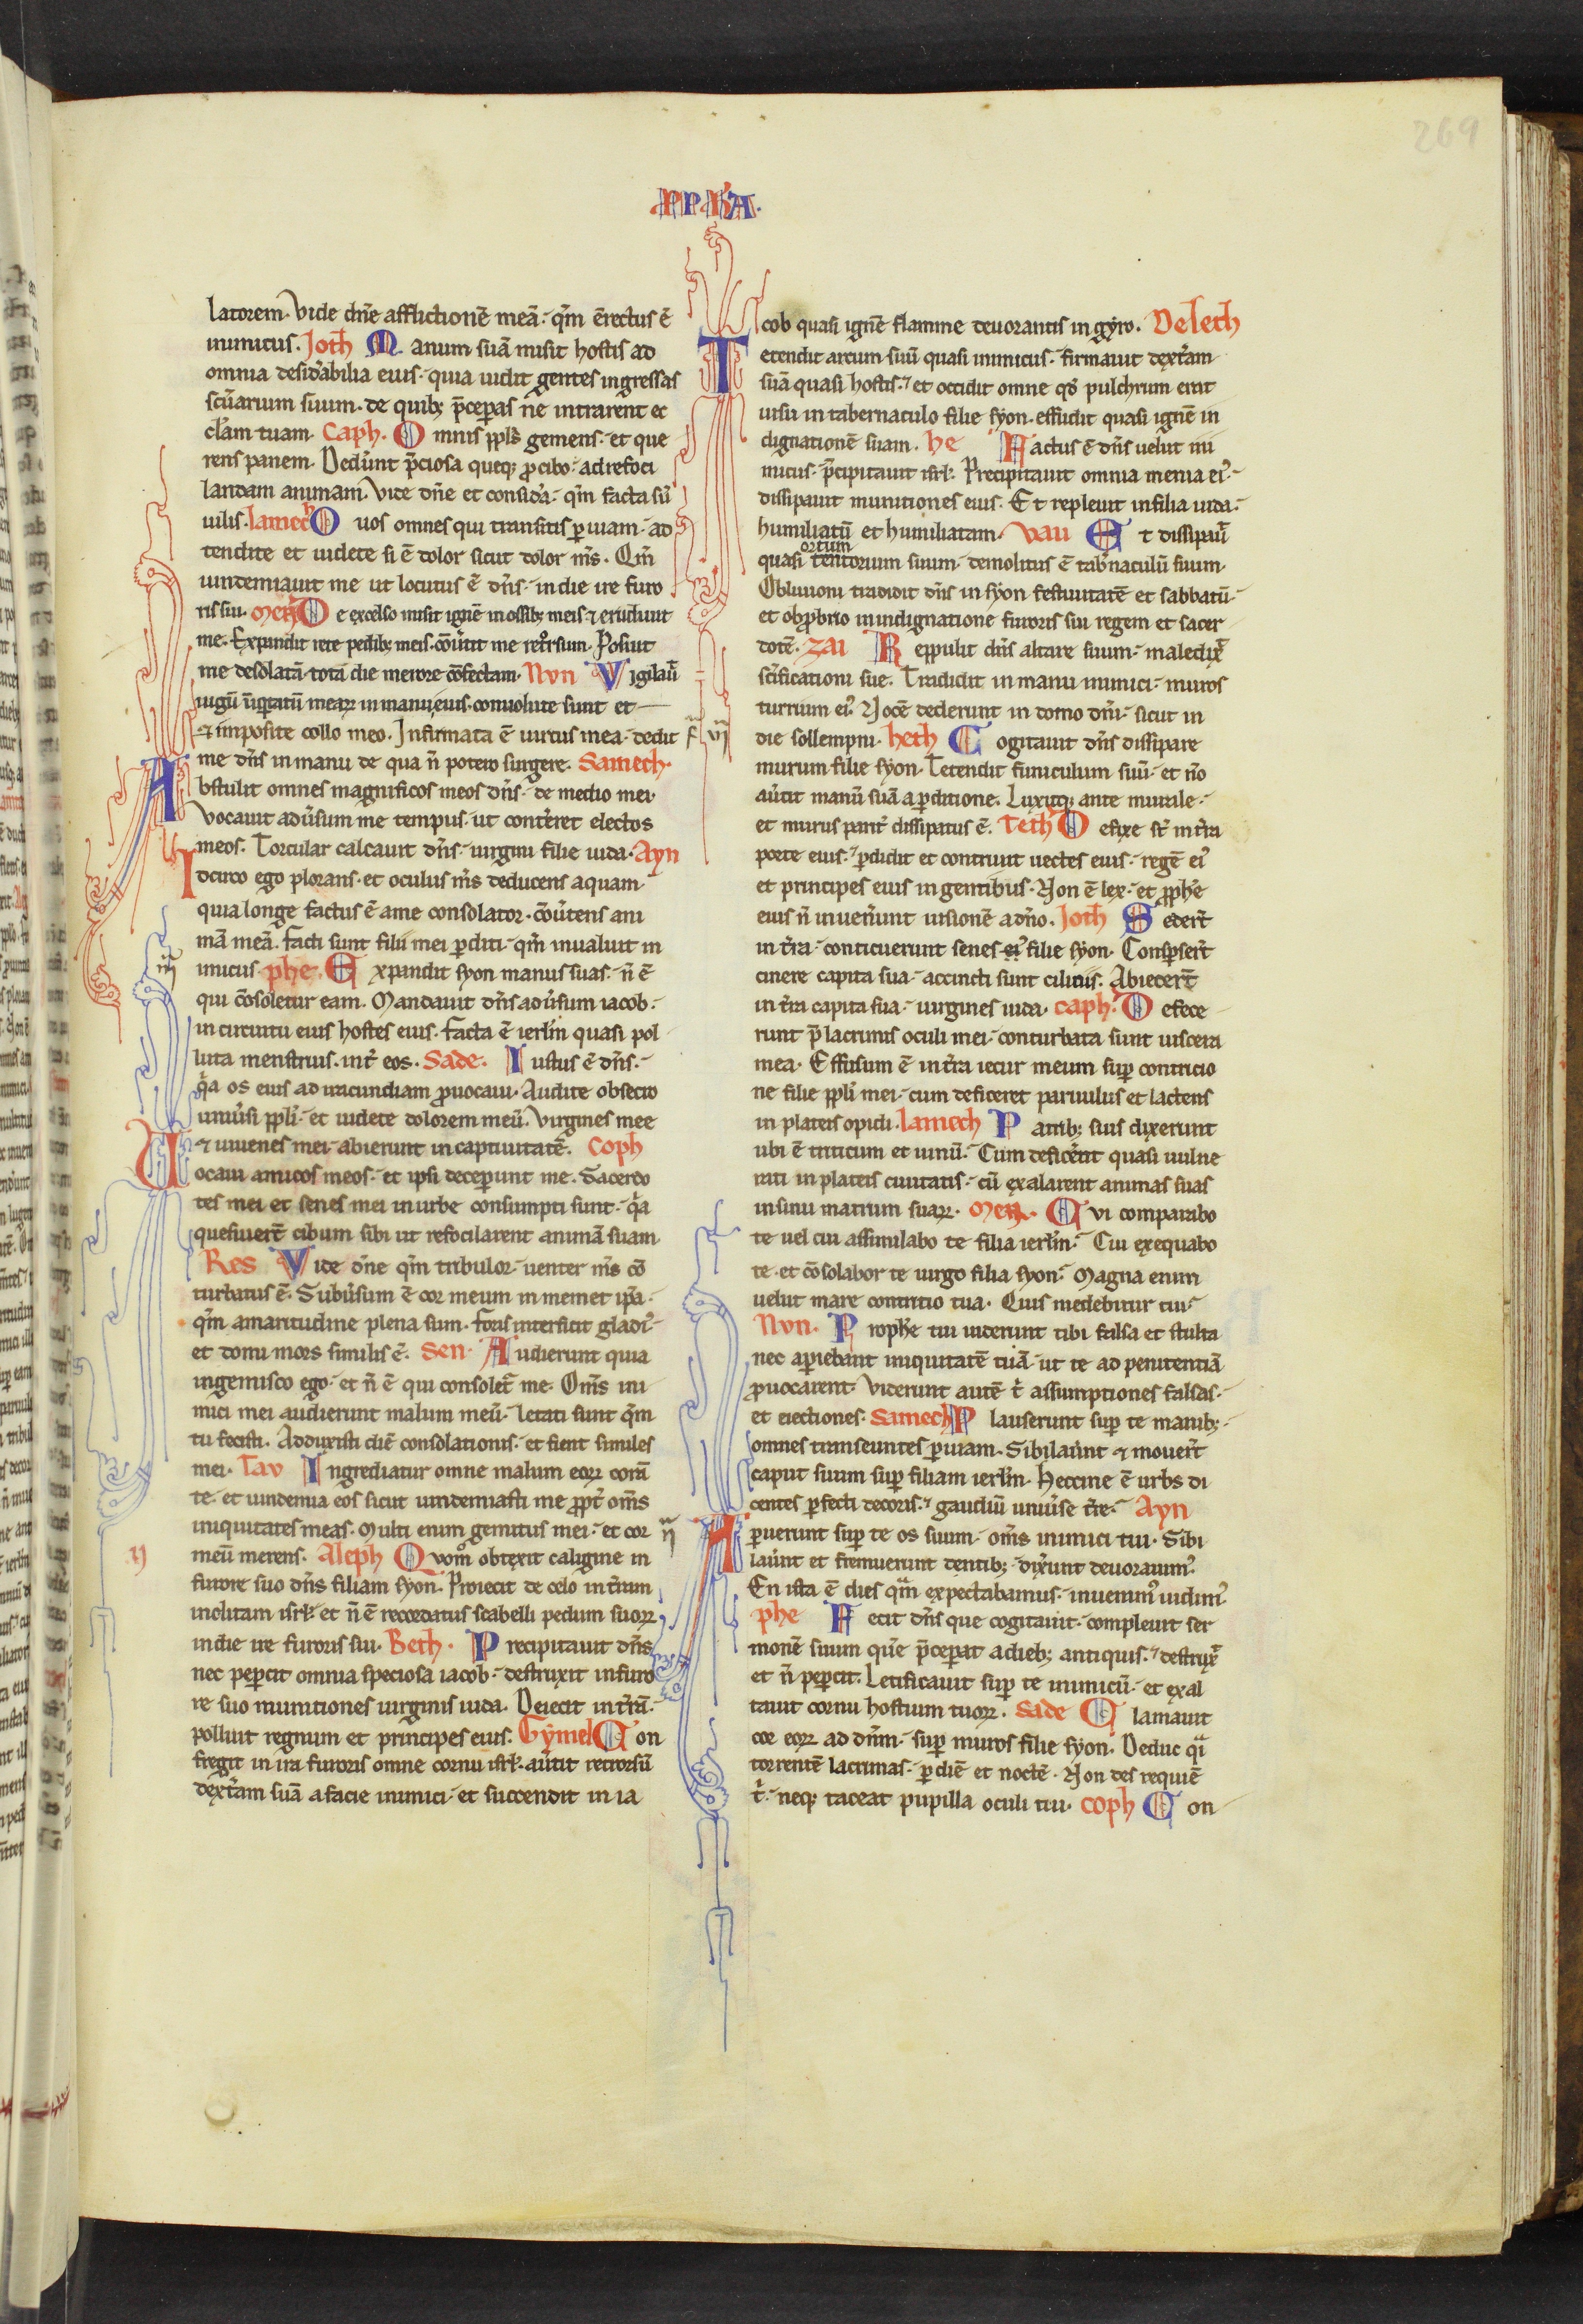 269
latorem. Vide dn̄e afflictionē meā. qm̄ ērectus ē
inimicus. Joth Manum suā misit hostis ad
omnia desid'abilia eius. quia uidit gentes ingressas
scu̅arium suum. de quib; p̄ceperas ne intrarent ec
cl'am tuam. Caph. Omnis ppl's gemens. et que
rens panem. Dedᵉunt p̄ciosa queq; pro cibo. ad refoci
landam animam. Vide dn̄e et consid'a. qm̄ facta sū
uilis. lamech O uos omnes qui transitis per uiam. ad
tendite et uidete si ē dolor sicut dolor m̄s. Qm̄
uindemiauit me ut locutus ē dn̄s. in die ire furo
ris sui. Mem De excelso misit ignē in ossib; meis ⁊ erudiuit
me. Expandit rete pedib; meis. cōuᵉtit me retrorsum. Posuit
me desolatā tota die merore cōfectam. Nun Vigilau̅
iugū iniquitatū mearꝝ in manu eius. conuolute sunt et
⁊ imposite collo meo. Infirmata ē uirtus mea. dedit
me dn̄s in manu de qua n̄ potero surgere. Samech.
Abstulit omnes magnificos meos dn̄s. de medio mei.
Vocauit adūsum me tempus. ut contᵉeret electos
meos. Torcular calcauit dn̄s. uirgini filie iuda. Ayn
Idcirco ego plorans. et oculus m̄s deducens aquam.
quia longe factus ē a me consolator. cōuᵉtens ani
mā meā. Facti sunt filii mei perditi. qm̄ inualuit in
imicus. phe. Expandit syon manus suas. n̄ ē
qui cōsoletur eam. Mandauit dn̄s adūsum iacob.
in circuitu eius hostes eius. facta ē ierl'm quasi pol
luta menstruis. int' eos. Sade. Iustus ē dn̄s.
qᵃa os eius ad iracundiam prouocaui. Audite obsecro
uniuᵉsi ppl'i. et uidete dolorem meū. Virgines mee
⁊ iuuenes mei. abierunt in captiuitatē. Coph
Vocaui amicos meos. et ipsi deceperunt me. Sacerdo
tes mei et senes mei in urbe consumpti sunt. qᵃa
quesiuer̄t cibum sibi ut refocilarent animā suam
Res Vide dn̄e qm̄ tribulor. uenter m̄s cō
turbatus ē. Subūsum ē cor meum in memet ip̄a.
qm̄ amaritudine plena sum. foris interficit gladi'
et domi mors similis ē. Sen. Audierunt quia
ingemisco ego. et n̄ ē qui consolet' me. Om̄s ini
mici mei audierunt malum meū. letati sunt qm̄
tu fecisti. Adduxisti diē consolationis. et fient similes
mei. Tav Ingrediatur omne malum eorꝝ corā
te. et uindemia eos sicut uindemiasti me propt' om̄s
iniquitates meas. Multi enim gemitus mei. et cor
meū merens. Aleph Quomodo obtexit caligine in
furore suo dn̄s filiam syon. Proiecit de celo in tᵉram
inclitam isrl'. et n̄ ē recordatus scabelli pedum suorꝝ
in die ire furoris sui. Beth. Precipitauit dn̄s
nec pepercit omnia speciosa iacob. destruxit in furo
re suo munitiones uirginis iuda. Deiecit in tᵉrā.
polluit regnum et principes eius. Gymel Con
fregit in ira furoris omne cornu isrl'. auᵉtit retrorsū
dextᵉam suā a facie inimici. et succendit in ia
cob quasi ignē flamme deuorantis in gyro. Deleth
Tetendit arcum suū quasi inimicus. firmauit dextᵉam
suā quasi hostis. et occidit omne qd' pulchrum erat
uisu in tabernaculo filie syon. effudit quasi ignē in
dignationē suam. he Factus ē dn̄s uelut ini
micus. p̄cipitauit isrl'. Precipitauit omnia menia ei'.
dissipauit munitiones eius. Et repleuit in filia iuda.
humiliatū et humiliatam. Vau Et dissipau̅
ortum
quasi tentorium suum. demolitus ē tab'naculū suum.
Obliuioni tradidit dn̄s in syon festiuitatē et sabbatū.
et obprobrio in indignatione furoris sui regem et sacer
dotē. Zai Reppulit dn̄s altare suum. maledix'
sc̄ificationi sue. Tradidit in manu inimici. muros
turrium ei'. Vocē dederunt in domo dn̄i. sicut in
die sollempni. heth Cogitauit dn̄s dissipare
murum filie syon. Tetendit funiculum suū. et nō
auᵉtit manū suā a perditione. Luxitq; ante murale.
et murus parit' dissipatus ē. Teth Defixe st̄ in tᵉra
porte eius. perdidit et contriuit uectes eius. regē ei'
et principes eius in gentibus. Non ē lex. et prophe
eius n̄ inuenᵉunt uisionē a dn̄o. Joth Sedert̄
in tᵉra. conticuerunt senes ei' filie syon. Conspersert̄
cinere capita sua. accincti sunt ciliciis. Abiecert̄
in tᵉra capita sua. uirgines iuda. Caph. Defece
runt p̄ lacrimis oculi mei. conturbata sunt uiscera
mea. Effusum ē in tᵉra iecur meum super contricio
ne filie ppl'i mei. cum deficeret paruulus et lactens
in plateis opidi. lamech Matrib; suis dixerunt
ubi ē triticum et uinū. Cum deficerēt quasi uulne
rati in plateis ciuitatis. cū exalarent animas suas
in sinu matrum suarꝝ. Mem. Cui comparabo
te uel cui assimilabo te filia ierl'm. Cui exequabo
te. et cōsolabor te uirgo filia syon. Magna enim
uelut mare contritio tua. Quis medebitur tui.
Nvn. Prophe tui uiderunt tibi falsa et stulta
nec aperiebant iniquitatē tuā. ut te ad penitentiā
prouocarent. Viderunt autē t' assumptiones falsas.
et eiectiones. Samech Plauserunt super te manib;
omnes transeuntes per uiam. Sibilauᵉunt ⁊ mouert̄
caput suum super filiam ierl'm. Heccine ē urbs di
centes perfecti decoris. gaudiū uniuᵉse tᵉre. Ayn
Aperuerunt super te os suum. om̄s inimici tui. Sibi
lauᵉunt et fremuerunt dentib; dixᵉunt deuorauim'
En ista ē dies qᵃm expectabamus. inuenim' uidim'
phe Fecit dn̄s que cogitauit. compleuit ser
monē suum quē p̄ceperat a dieb; antiquis. destrux'
et n̄ pepercit. Letificauit super te inimicū. et exal
tauit cornu hostium tuorꝝ. Sade Clamauit
cor eorꝝ ad dn̄m. super muros filie syon. Deduc qᵃi
torrentē lacrimas. per diē et noctē. Non des requiē
t'. neq; taceat pupilla oculi tui. Coph Con